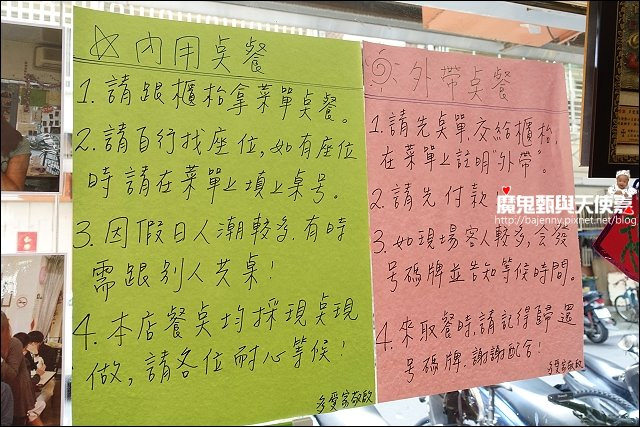 ☆內用桌餐
1. 請跟櫃枱拿菜單桌餐。
2. 請自行找座位,如有座位
時請在菜單上填上桌号。
3. 因假日人潮較多.有時
需跟別人共桌!
4. 本店餐桌均採現桌現
做,請各位耐心等候!
多愛家敬啟
外帶桌餐
1. 請先桌單,交給櫃枱,
在菜單上註明"外帶"。
2. 請先付款
3. 如現場客人較多,会發
号碼牌並告知等候時間。
4. 來取餐時,請記得歸還
号碼牌.謝謝配合!
多愛家敬啟
魔鬼甄與天使嘉
http://bajenny.pixnet.net/blog